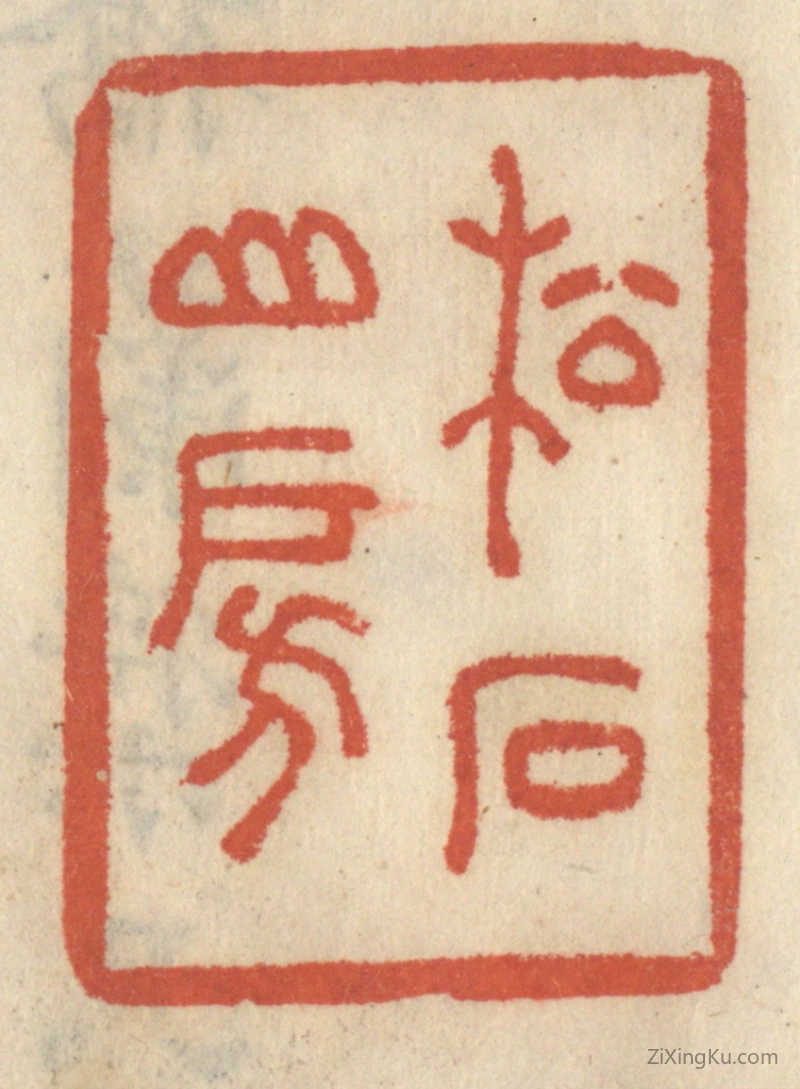 松石
山房
ZiXingKu.com